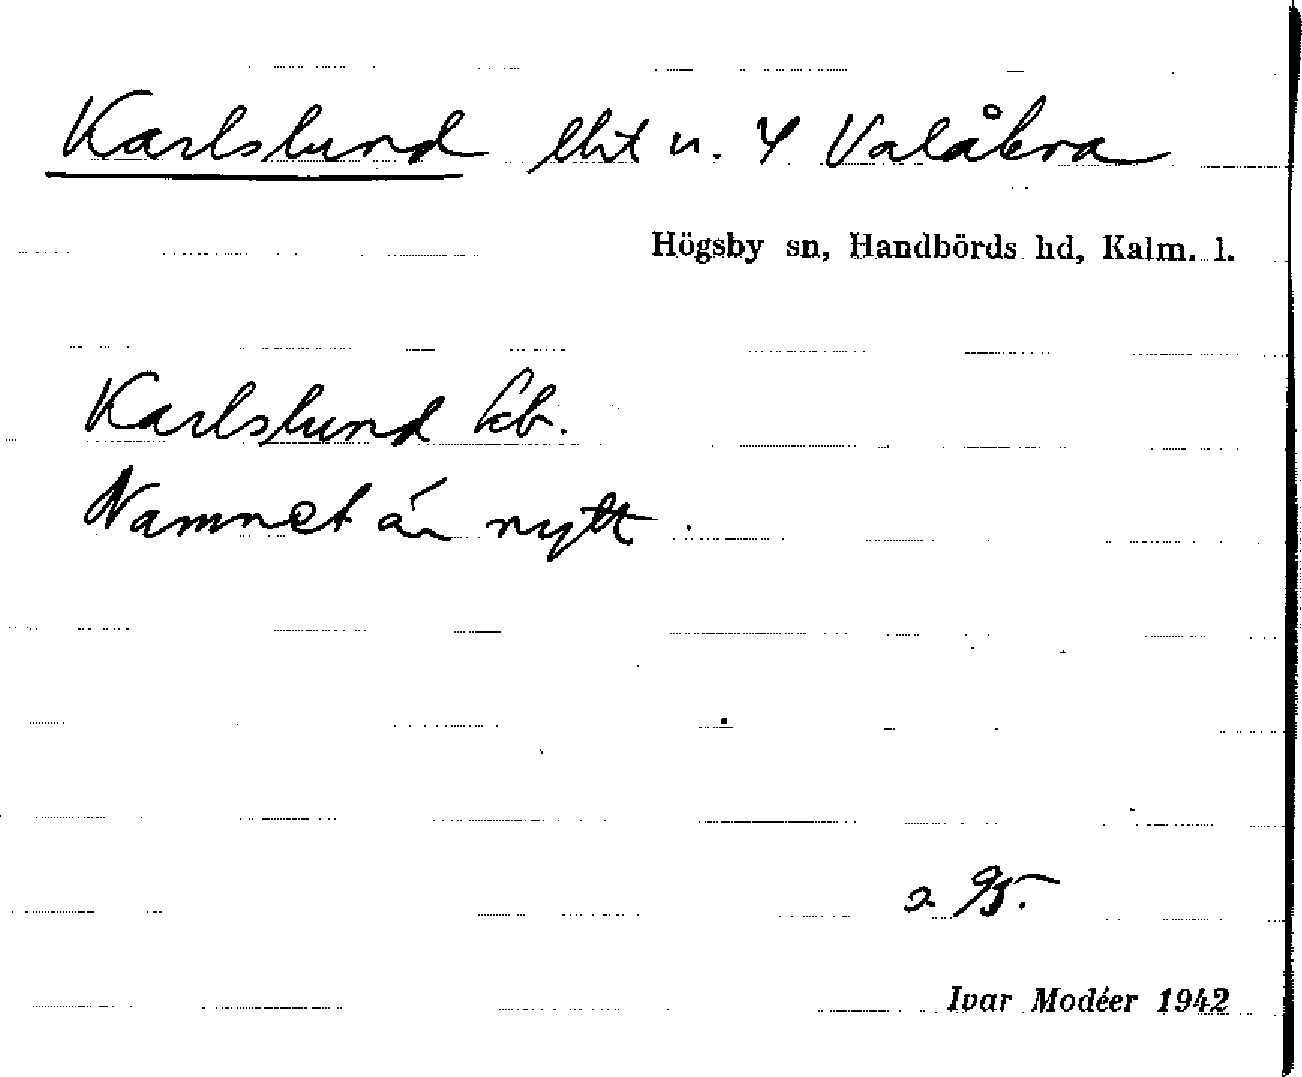 Karlslund lht u. 4 Valåkra
Högsby sn, Handbörds hd, Kalm. l.
Karlslund kb.
Namnet är nytt.
Ivar Modéer 1942